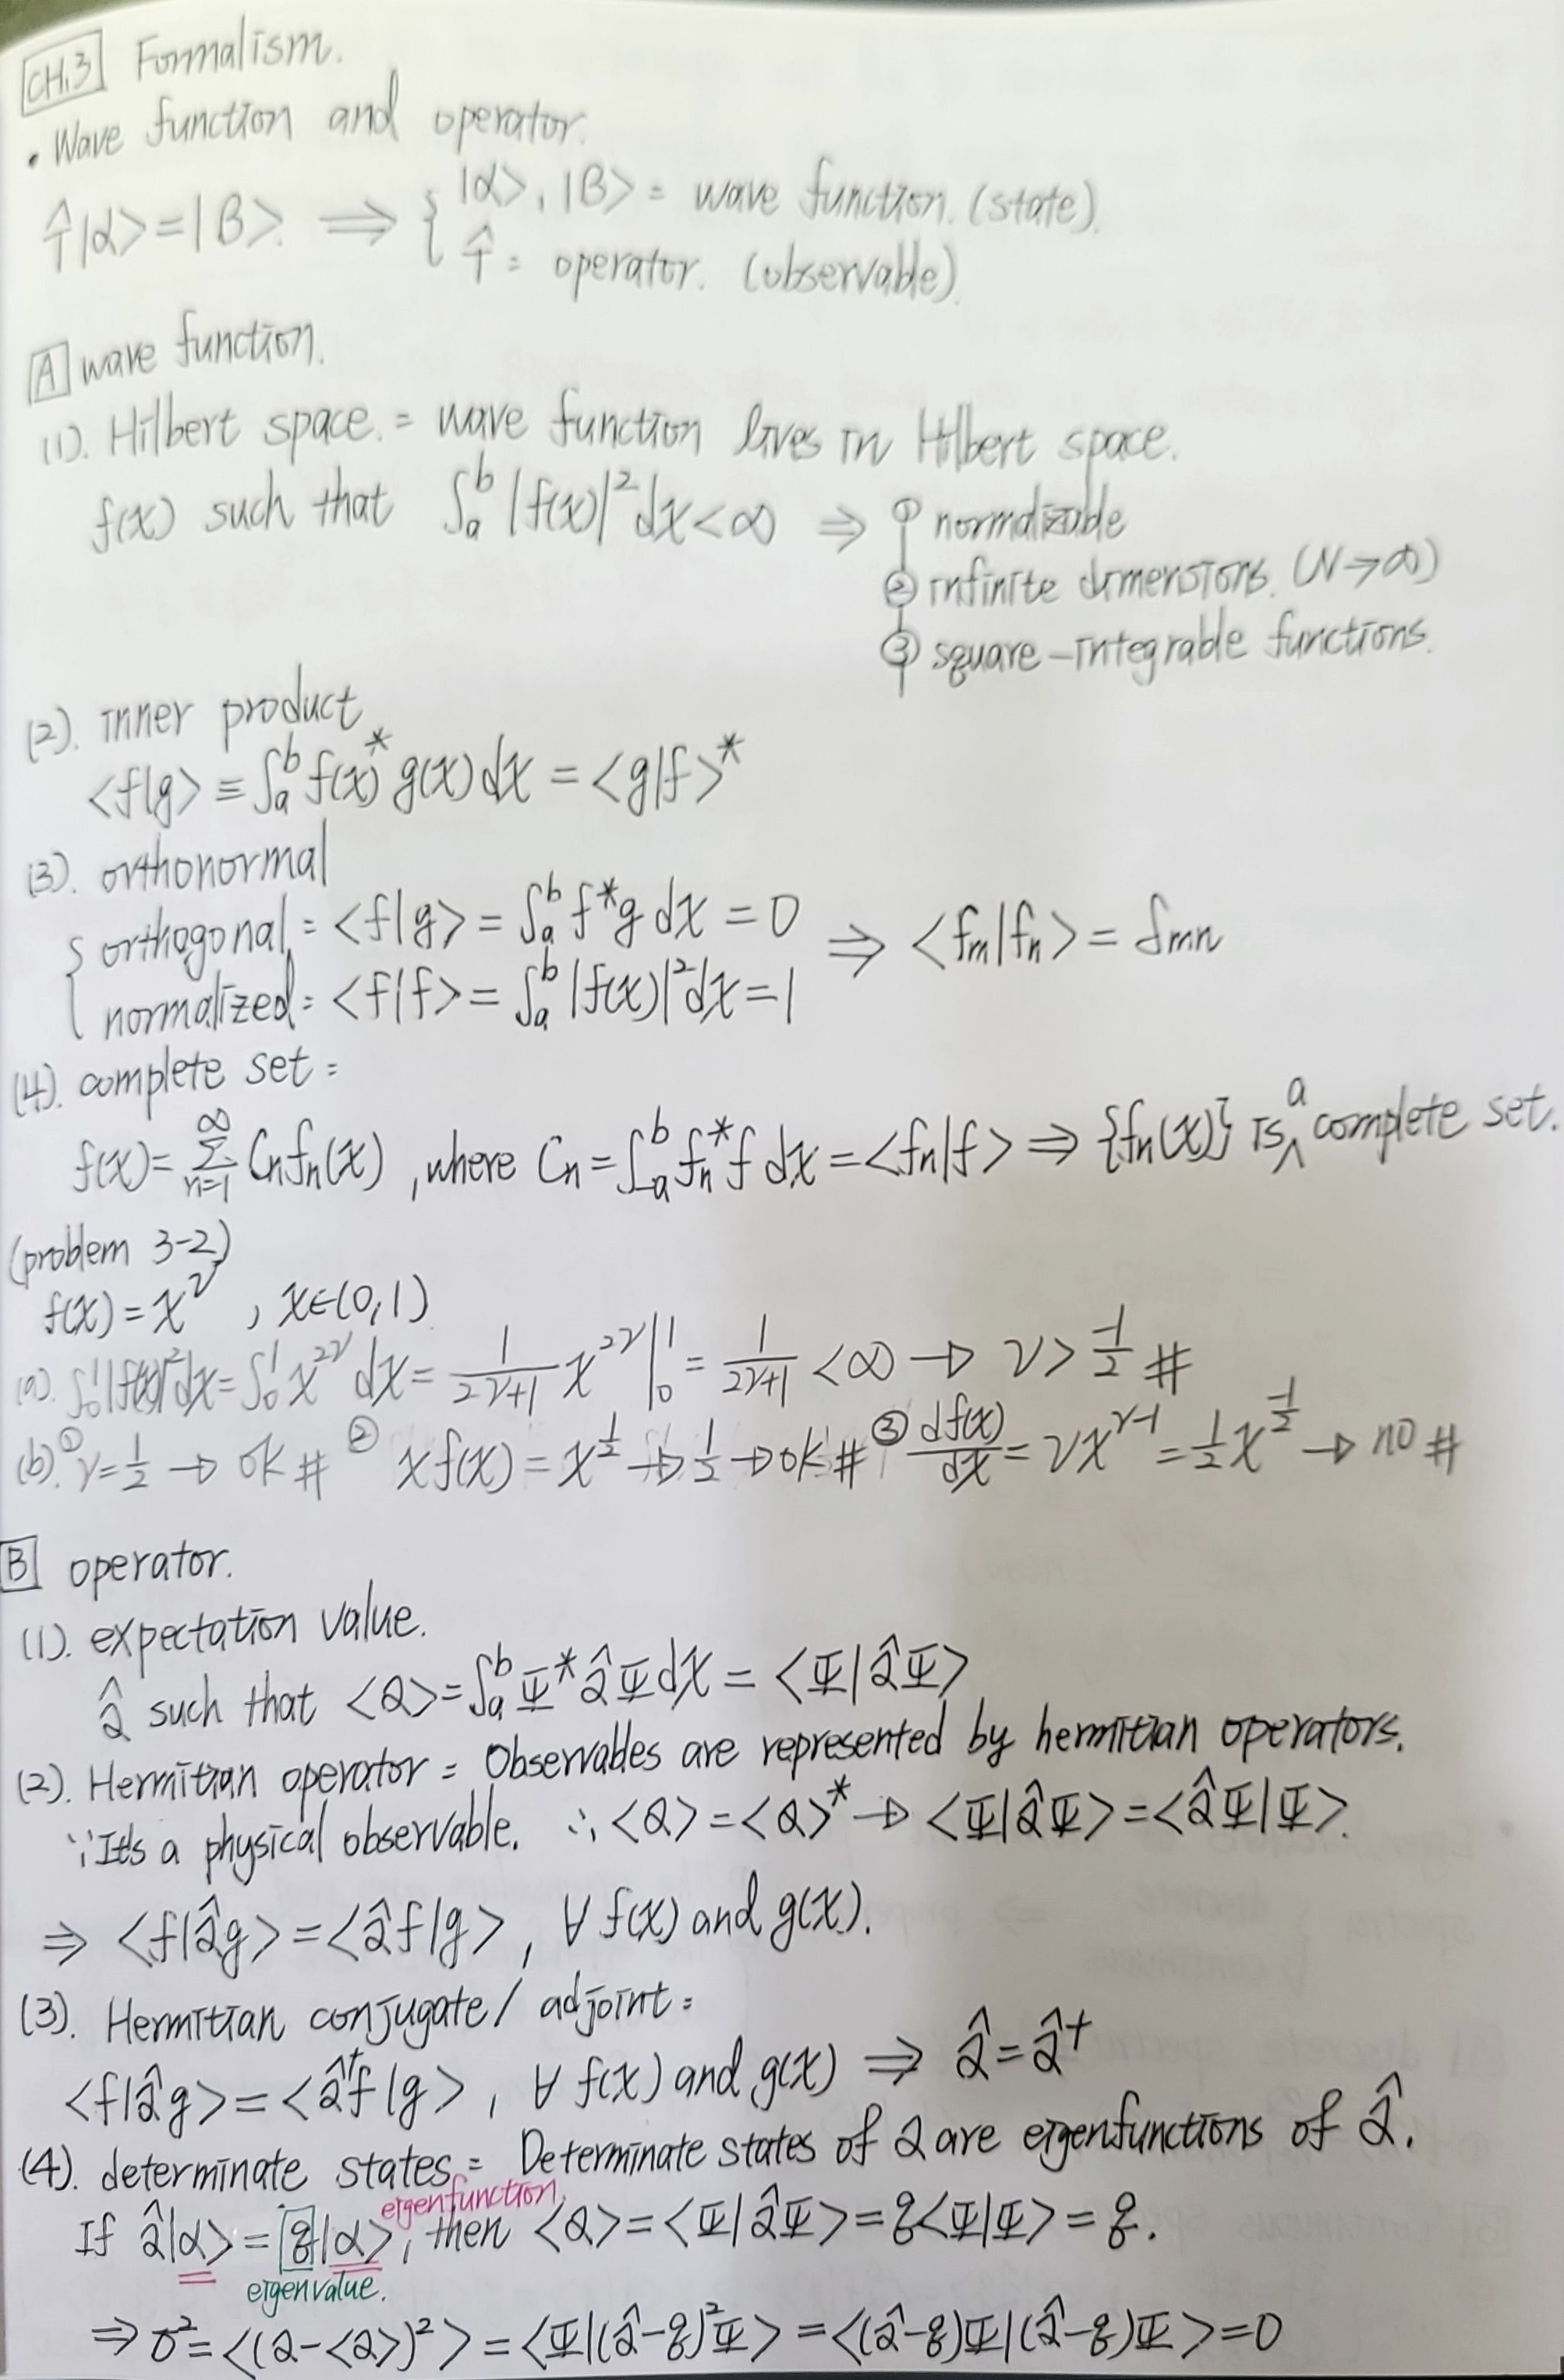 CH.3 Formalism.
• Wave function and operator.
T̂|α>=|β>. ⟹ { |α>, |β> = wave function. (state).
T̂ = operator. (observable).
A wave function.
(1). Hilbert space. = wave function lives in Hilbert space.
f(x) such that ∫ₐᵇ |f(x)|² dx < ∞ ⇒ ① normalizable
② infinite dimensions. (N→∞)
③ square-integrable functions.
(2). inner product
<f|g> ≡ ∫ₐᵇ f(x)* g(x) dx = <g|f>*
(3). orthonormal
{ orthogonal = <f|g> = ∫ₐᵇ f*g dx = 0 ⇒ <fₘ|fₙ> = δmn
normalized = <f|f> = ∫ₐᵇ |f(x)|² dx = 1
(4). complete set =
f(x) = Σₙ₌₁^∞ Cₙfₙ(x), where Cₙ = ∫ₐᵇ fₙ* f dx = <fₙ|f> ⇒ {fₙ(x)} is a complete set.
(problem 3-2)
f(x) = x^ν, x∈(0,1)
(a). ∫₀¹|f(x)|²dx = ∫₀¹ x^2ν dx = 1/(2ν+1) x^2ν |₀¹ = 1/(2ν+1) < ∞ → ν > -1/2 #
(b). ① ν = 1/2 → ok # ② xf(x) = x^1/2 → 1/2 → ok # ③ df(x)/dx = νx^ν-1 = 1/2 x^-1/2 → no #
B operator.
(1). expectation value.
Q̂ such that <Q> = ∫ₐᵇ Ψ* Q̂ Ψ dx = <Ψ|Q̂Ψ>
(2). Hermitian operator = Observables are represented by hermitian operators.
∵ It's a physical observable. ∴ <Q> = <Q>* → <Ψ|Q̂Ψ> = <Q̂Ψ|Ψ>.
⇒ <f|Q̂g> = <Q̂f|g>, ∀ f(x) and g(x).
(3). Hermitian conjugate / adjoint =
<f|Q̂g> = <Q̂†f|g>, ∀ f(x) and g(x) ⇒ Q̂ = Q̂†
(4). determinate states = Determinate states of Q are eigenfunctions of Q̂.
eigenfunction.
If Q̂|α> = q|α>, then <Q> = <Ψ|Q̂Ψ> = q<Ψ|Ψ> = q.
eigenvalue.
⇒ σ² = <(Q-<Q>)²> = <Ψ|(Q̂-q)²Ψ> = <(Q̂-q)Ψ|(Q̂-q)Ψ> = 0